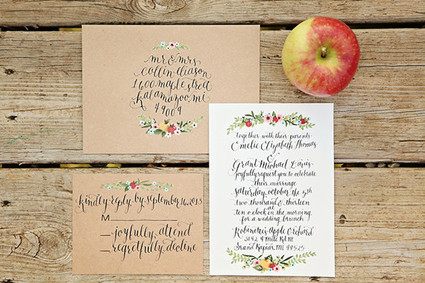 mr & mrs
collin gleason
1600 maple street
kalamazoo, mi
49009
together with their parents
Emelie Elizabeth Thomas
&
Grant Michael
joyfully request you to celebrate
their marriage
saturday, october the 5th
two thousand & thirteen at
ten o'clock in the morning
for a wedding brunch
Robinette's Apple Orchard
3142 4 Mile Rd N
Grand Rapids, MI 49525
kindly reply by september 16, 2013
M
joyfully, attend
regretfully, decline